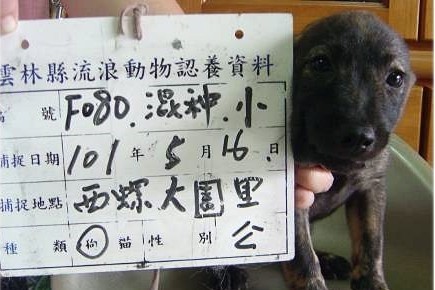 雲林縣流浪動物認養資料
號 F080.混种.小
捕捉日期 101年5月16日
捕捉地點 西螺大園里
種類 狗 貓 性別 公